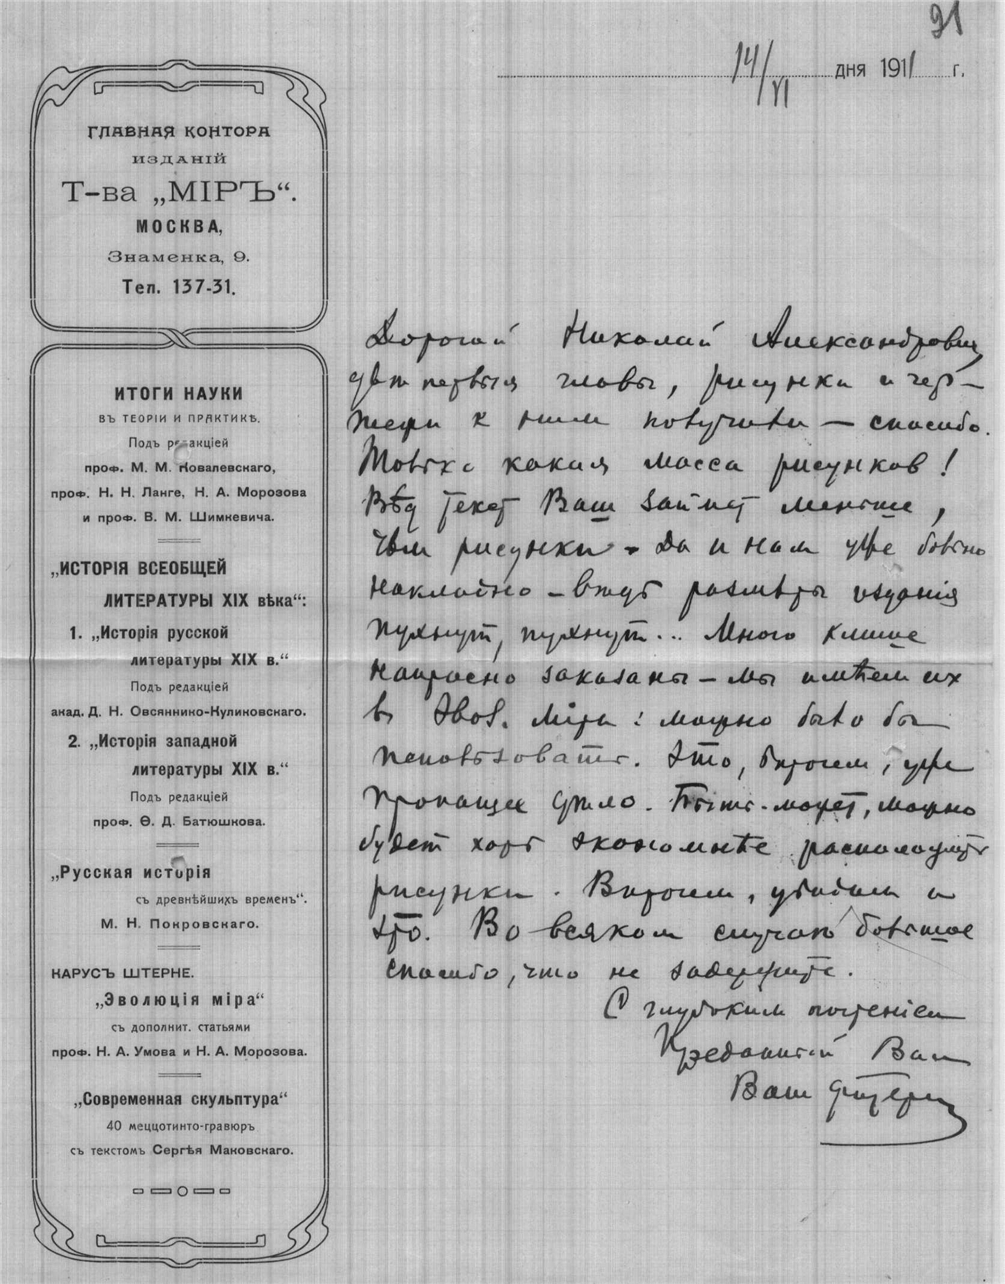 91
14/VI дня 1911 г.
ГЛАВНАЯ КОНТОРА
ИЗДАНІЙ
Т-ва „МІРЪ“.
МОСКВА,
Знаменка, 9.
Тел. 137-31.
ИТОГИ НАУКИ
ВЪ ТЕОРІИ И ПРАКТИКѢ.
Подъ редакціей
проф. М. М. Ковалевскаго,
проф. Н. Н. Ланге, Н. А. Морозова
и проф. В. М. Шимкевича.
„ИСТОРІЯ ВСЕОБЩЕЙ
ЛИТЕРАТУРЫ XIX вѣка“:
1. „Исторія русской
литературы XIX в.“
Подъ редакціей
акад. Д. Н. Овсянико-Куликовскаго.
2. „Исторія западной
литературы XIX в.“
Подъ редакціей
проф. Ѳ. Д. Батюшкова.
„Русская исторія
съ древнѣйшихъ временъ“.
М. Н. Покровскаго.
КАРУСЪ ШТЕРНЕ.
„Эволюція міра“
съ дополнит. статьями
проф. Н. А. Умова и Н. А. Морозова.
„Современная скульптура“
40 меццотинто-гравюръ
съ текстомъ Сергѣя Маковскаго.
Дорогой Николай Александрович,
первыя главы, рисунки и чер-
тежи к ним получили – спасибо.
Только какая масса рисунков!
Вѣдь текст Ваш займет меньше,
чѣм рисунки. Да и нам уже больно
накладно – вѣдь размѣры изданія
пухнут, пухнут... Много клише
напрасно заказаны – мы имѣем их
в Эвол. Міра: можно было бы
использовать. Это, впрочем, уже
пропащее дѣло. Быть-может, можно
будет хоть экономнѣе расположить
рисунки. Впрочем, и
это. Во всяком случаѣ большое
спасибо, что не задержите.
С глубоким почтеніем
Преданный Вам
Ваш